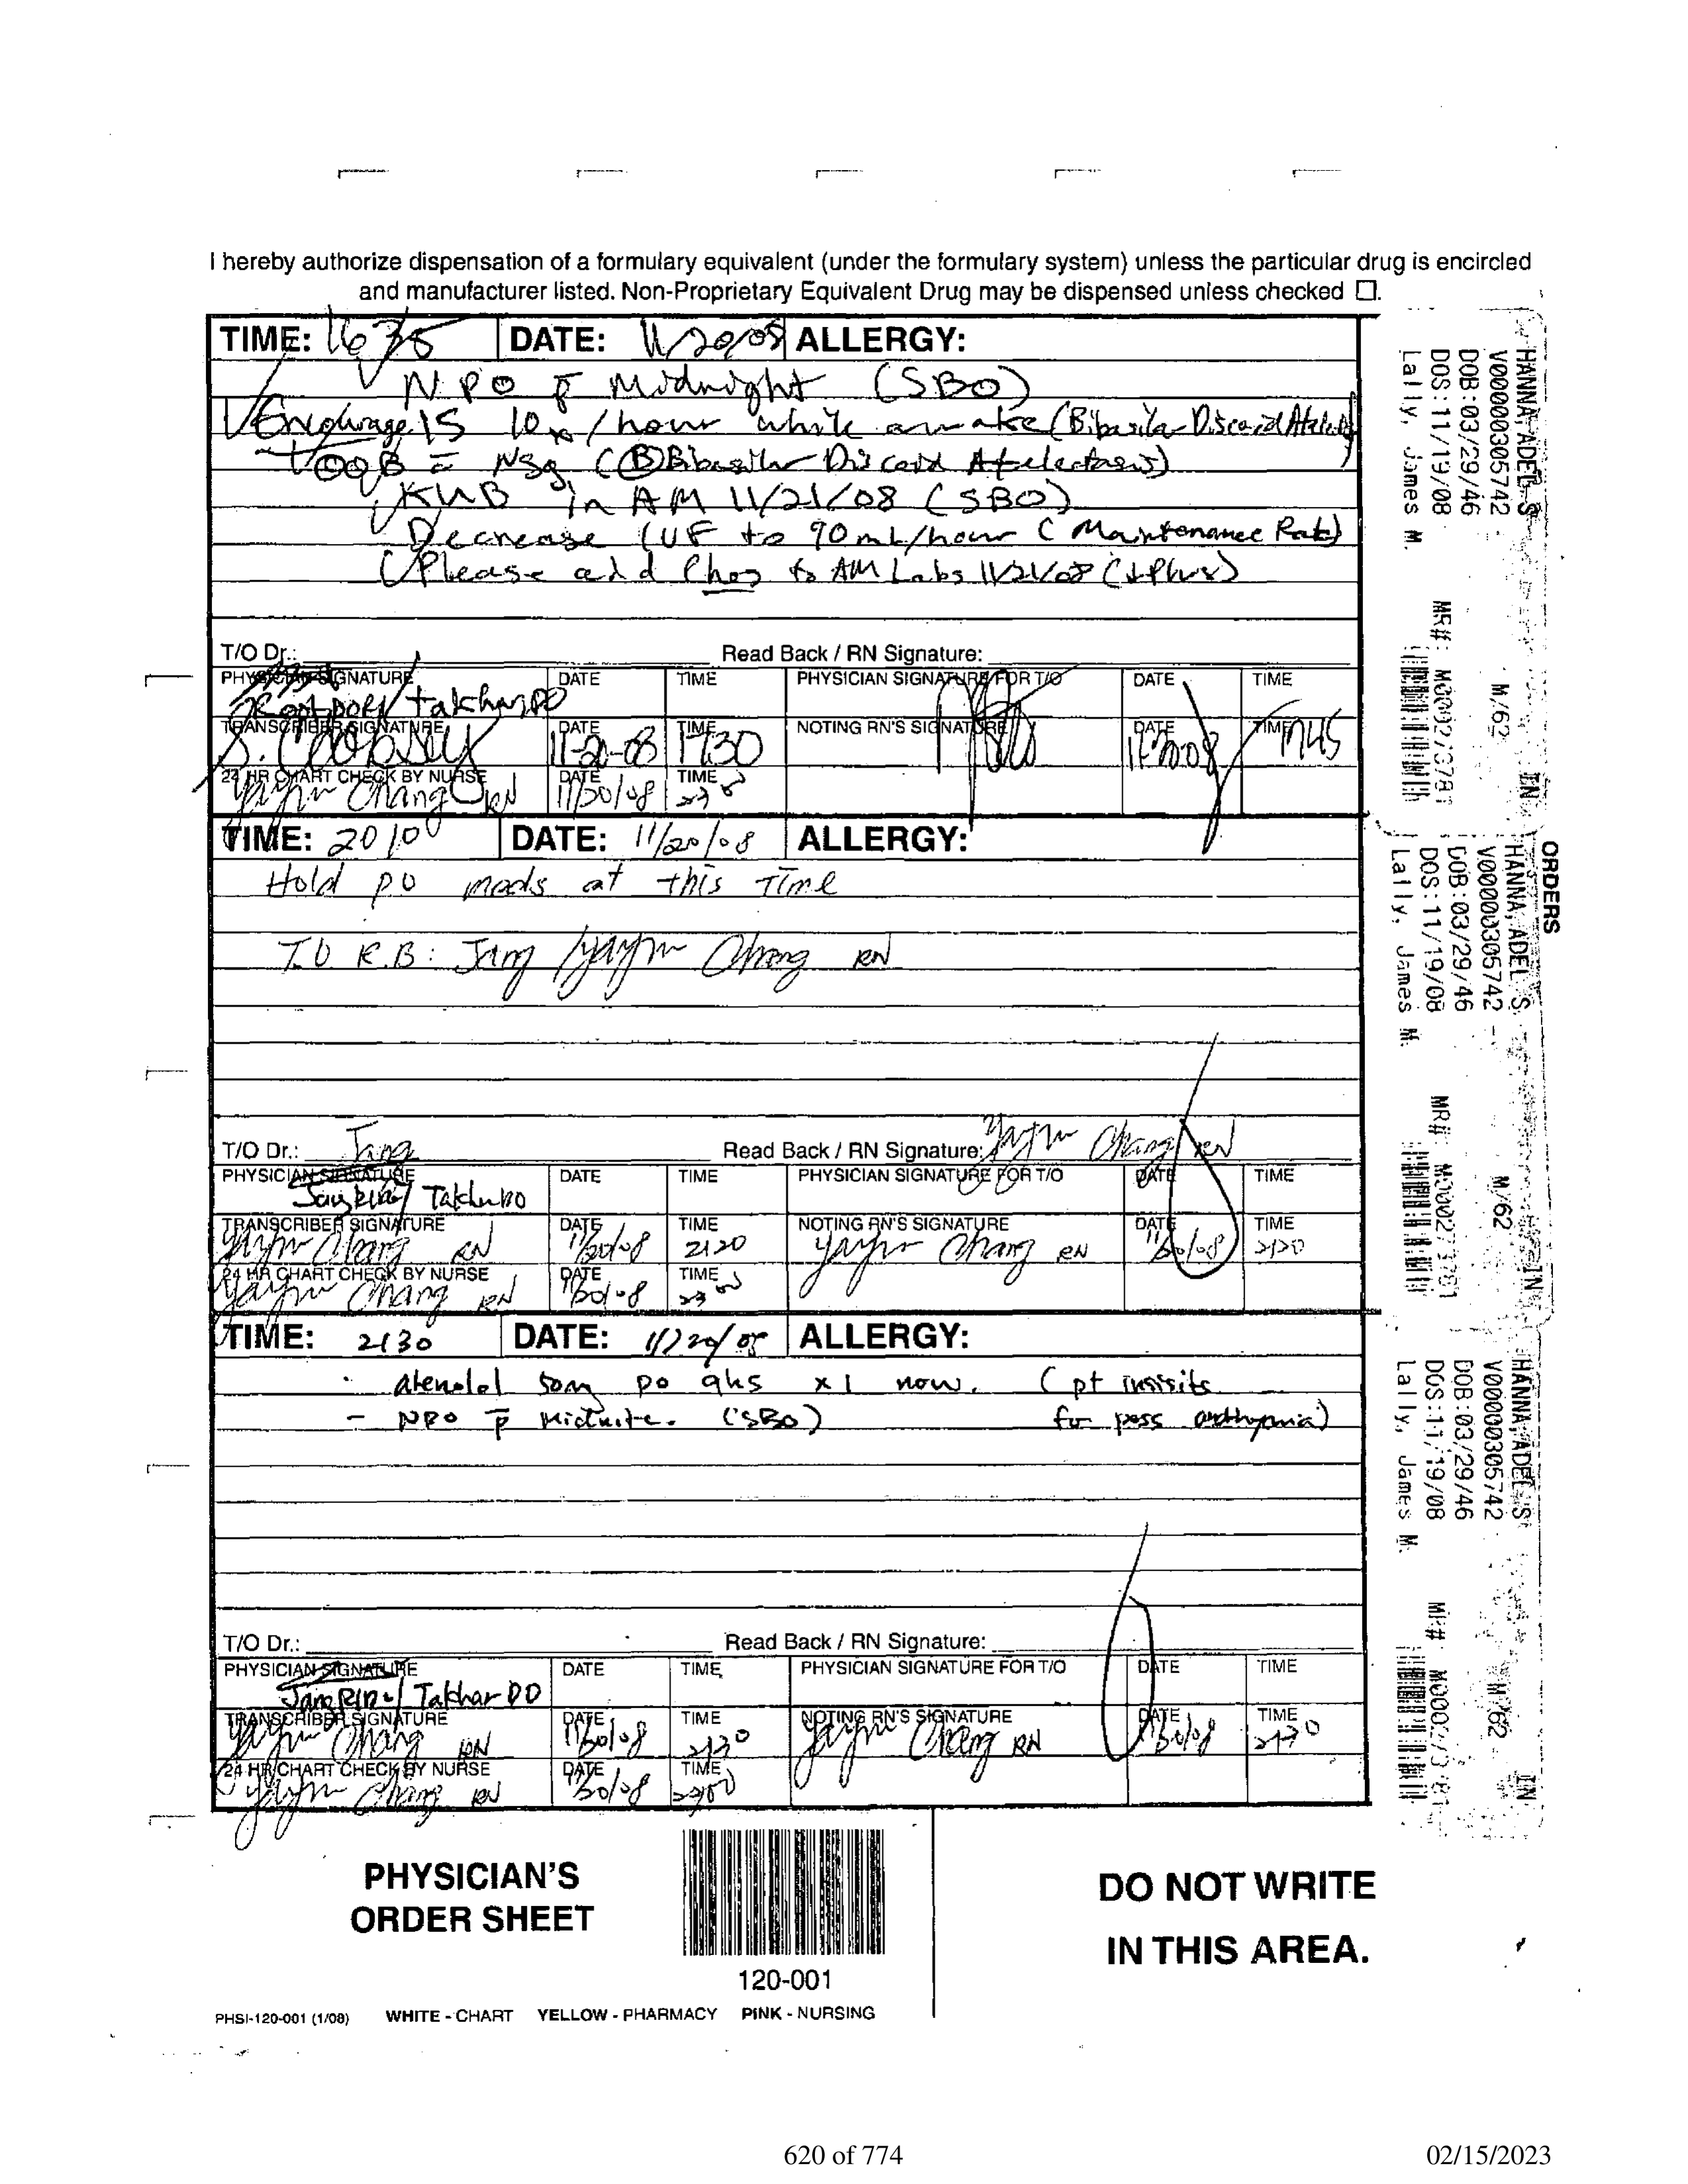 I hereby authorize dispensation of a formulary equivalent (under the formulary system) unless the particular drug is encircled
and manufacturer listed. Non-Proprietary Equivalent Drug may be dispensed unless checked ☐.
TIME: 1635 DATE: 11/20/08 ALLERGY:
NPO p̄ Midnight (SBO)
Encourage IS 10x/hour while awake (Bibasilar Discoid
OOB = Nsg (Ⓑ Bibasilar Discoid Atelectasis)
KUB in AM 11/21/08 (SBO)
Decrease IVF to 90 mL/hour (Maintenance Rate)
Please add Phos to AM Labs 11/21/08 (↓Phos)
T/O Dr.: Read Back / RN Signature:
PHYSICIAN SIGNATURE DATE TIME PHYSICIAN SIGNATURE FOR T/O DATE TIME
Takhar DO
TRANSCRIBER SIGNATURE DATE TIME NOTING RN'S SIGNATURE DATE TIME
S. 11-20-08 1730 11-20-08 1745
24 HR CHART CHECK BY NURSE DATE TIME
Chang RN 11/20/08 2300
TIME: 2010 DATE: 11/20/08 ALLERGY:
Hold po meds at this Time
T.O. R.B: Jang / Chang RN
T/O Dr.: Jang Read Back / RN Signature: Chang RN
PHYSICIAN SIGNATURE DATE TIME PHYSICIAN SIGNATURE FOR T/O DATE TIME
Takhar DO
TRANSCRIBER SIGNATURE DATE TIME NOTING RN'S SIGNATURE DATE TIME
Chang RN 11/20/08 2120 Chang RN 11/20/08 2120
24 HR CHART CHECK BY NURSE DATE TIME
Chang RN 11/20/08 2300
TIME: 2130 DATE: 11/20/08 ALLERGY:
· atenolol 50mg po qhs x1 now. (pt insisits
- NPO p̄ Midnite. (SBO) for poss
T/O Dr.: Read Back / RN Signature:
PHYSICIAN SIGNATURE DATE TIME PHYSICIAN SIGNATURE FOR T/O DATE TIME
Takhar DO
TRANSCRIBER SIGNATURE DATE TIME NOTING RN'S SIGNATURE DATE TIME
Chang RN 11/20/08 2130 Chang RN 11/20/08 2130
24 HR CHART CHECK BY NURSE DATE TIME
Chang RN 11/20/08 2300
HANNA, ADEL S
V00000305742 M/62 IN
DOB:03/29/46
DOS:11/19/08 MR#: M000273781
Lally, James M.
ORDERS
HANNA, ADEL S
V00000305742 M/62 IN
DOB:03/29/46
DOS:11/19/08 MR#: M000273781
Lally, James M.
HANNA, ADEL S
V00000305742 M/62 IN
DOB:03/29/46
DOS:11/19/08 MR#: M000273781
Lally, James M.
PHYSICIAN'S
ORDER SHEET
120-001
DO NOT WRITE
IN THIS AREA.
PHSI-120-001 (1/08) WHITE - CHART YELLOW - PHARMACY PINK - NURSING
620 of 774 02/15/2023